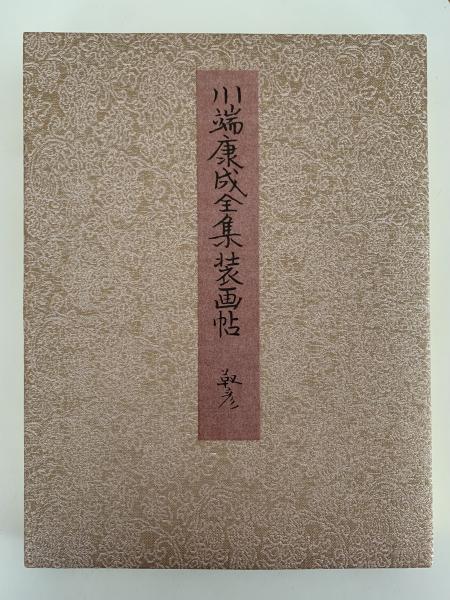 川端康成全集装画帖
靫彦